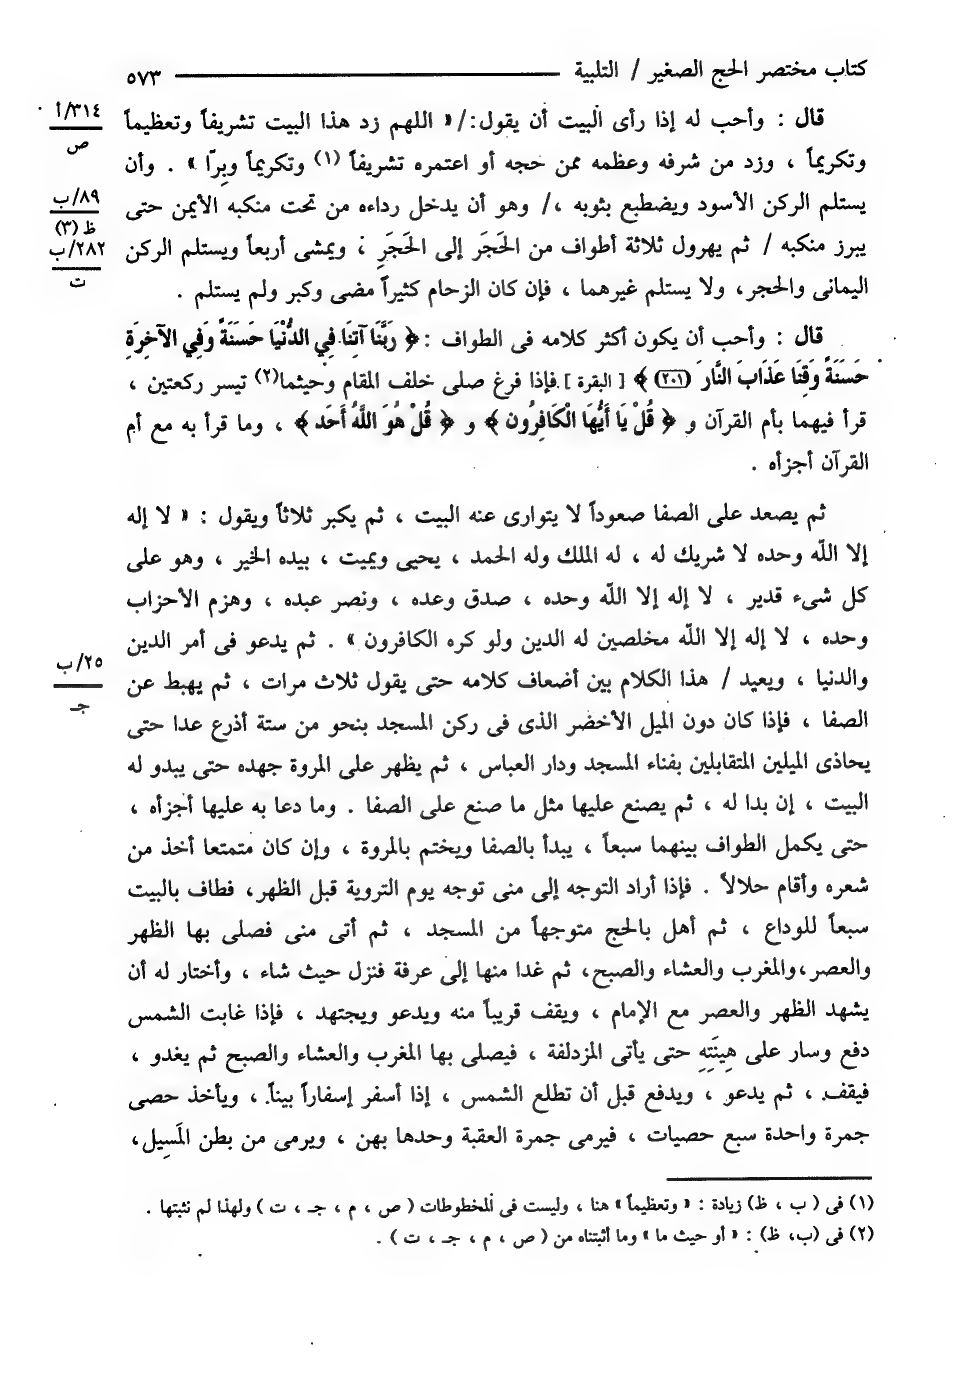 كتاب مختصر الحج الصغير / التلبية ٥٧٣
قال : وأحب له إذا رأى البيت أن يقول:/« اللهم زد هذا البيت تشريفاً وتعظيماً
٣١٤/أ
ص
وتكريماً ، وزد من شرفه وعظمه ممن حجه أو اعتمره تشريفاً (١) وتكريماً وبِرّا » . وأن
يستلم الركن الأسود ويضطبع بثوبه ،/ وهو أن يدخل رداءه من تحت منكبه الأيمن حتى
٨٩/ب
ظ (٣)
يبرز منكبه / ثم يهرول ثلاثة أطواف من الحَجَر إلى الحَجَرِ ، ويمشى أربعاً ويستلم الركن
٢٨٢/ب
ت
اليمانى والحجر، ولا يستلم غيرهما ، فإن كان الزحام كثيراً مضى وكبر ولم يستلم .
قال : وأحب أن يكون أكثر كلامه فى الطواف : ﴿ رَبَّنَا آتِنَا فِي الدُّنْيَا حَسَنَةً وَفِي الآخِرَةِ
حَسَنَةً وَقِنَا عَذَابَ النَّارَ (٢٠١) ﴾ [ البقرة ] .فإذا فرغ صلى خلف المقام وحيثما(٢) تيسر ركعتين ،
قرأ فيهما بأم القرآن و ﴿ قُلْ يَا أَيُّهَا الْكَافِرُون ﴾ و ﴿ قُلْ هُوَ اللَّهُ أَحَد ﴾ ، وما قرأ به مع أم
القرآن أجزأه .
ثم يصعد على الصفا صعوداً لا يتوارى عنه البيت ، ثم يكبر ثلاثاً ويقول : « لا إله
إلا اللّه وحده لا شريك له ، له الملك وله الحمد ، يحيى ويميت ، بيده الخير ، وهو على
كل شىء قدير ، لا إله إلا اللّه وحده ، صدق وعده ، ونصر عبده ، وهزم الأحزاب
وحده ، لا إله إلا اللّه مخلصين له الدين ولو كره الكافرون » . ثم يدعو فى أمر الدين
والدنيا ، ويعيد / هذا الكلام بين أضعاف كلامه حتى يقول ثلاث مرات ، ثم يهبط عن
٢٥/ب
جـ
الصفا ، فإذا كان دون الميل الأخضر الذى فى ركن المسجد بنحو من ستة أذرع عدا حتى
يحاذى الميلين المتقابلين بفناء المسجد ودار العباس ، ثم يظهر على المروة جهده حتى يبدو له
البيت ، إن بدا له ، ثم يصنع عليها مثل ما صنع على الصفا . وما دعا به عليها أجزأه ،
حتى يكمل الطواف بينهما سبعاً ، يبدأ بالصفا ويختم بالمروة ، وإن كان متمتعا أخذ من
شعره وأقام حلالاً . فإذا أراد التوجه إلى منى توجه يوم التروية قبل الظهر، فطاف بالبيت
سبعاً للوداع ، ثم أهل بالحج متوجهاً من المسجد ، ثم أتى منى فصلى بها الظهر
والعصر،والمغرب والعشاء والصبح، ثم غدا منها إلى عرفة فنزل حيث شاء ، وأختار له أن
يشهد الظهر والعصر مع الإمام ، ويقف قريباً منه ويدعو ويجتهد ، فإذا غابت الشمس
دفع وسار على هِينَتِهِ حتى يأتى المزدلفة ، فيصلى بها المغرب والعشاء والصبح ثم يغدو ،
فيقف ، ثم يدعو ، ويدفع قبل أن تطلع الشمس ، إذا أسفر إسفاراً بيناً ، ويأخذ حصى
جمرة واحدة سبع حصيات ، فيرمى جمرة العقبة وحدها بهن ، ويرمى من بطن المَسِيل،
(١) فى ( ب ، ظ) زيادة : « وتعظيماً » هنا ، وليست فى المخطوطات ( ص ، م ، جـ ، ت ) ولهذا لم نثبتها .
(٢) فى (ب، ظ) : « أو حيث ما » وما أثبتناه من ( ص ، م ، جـ ، ت ) .